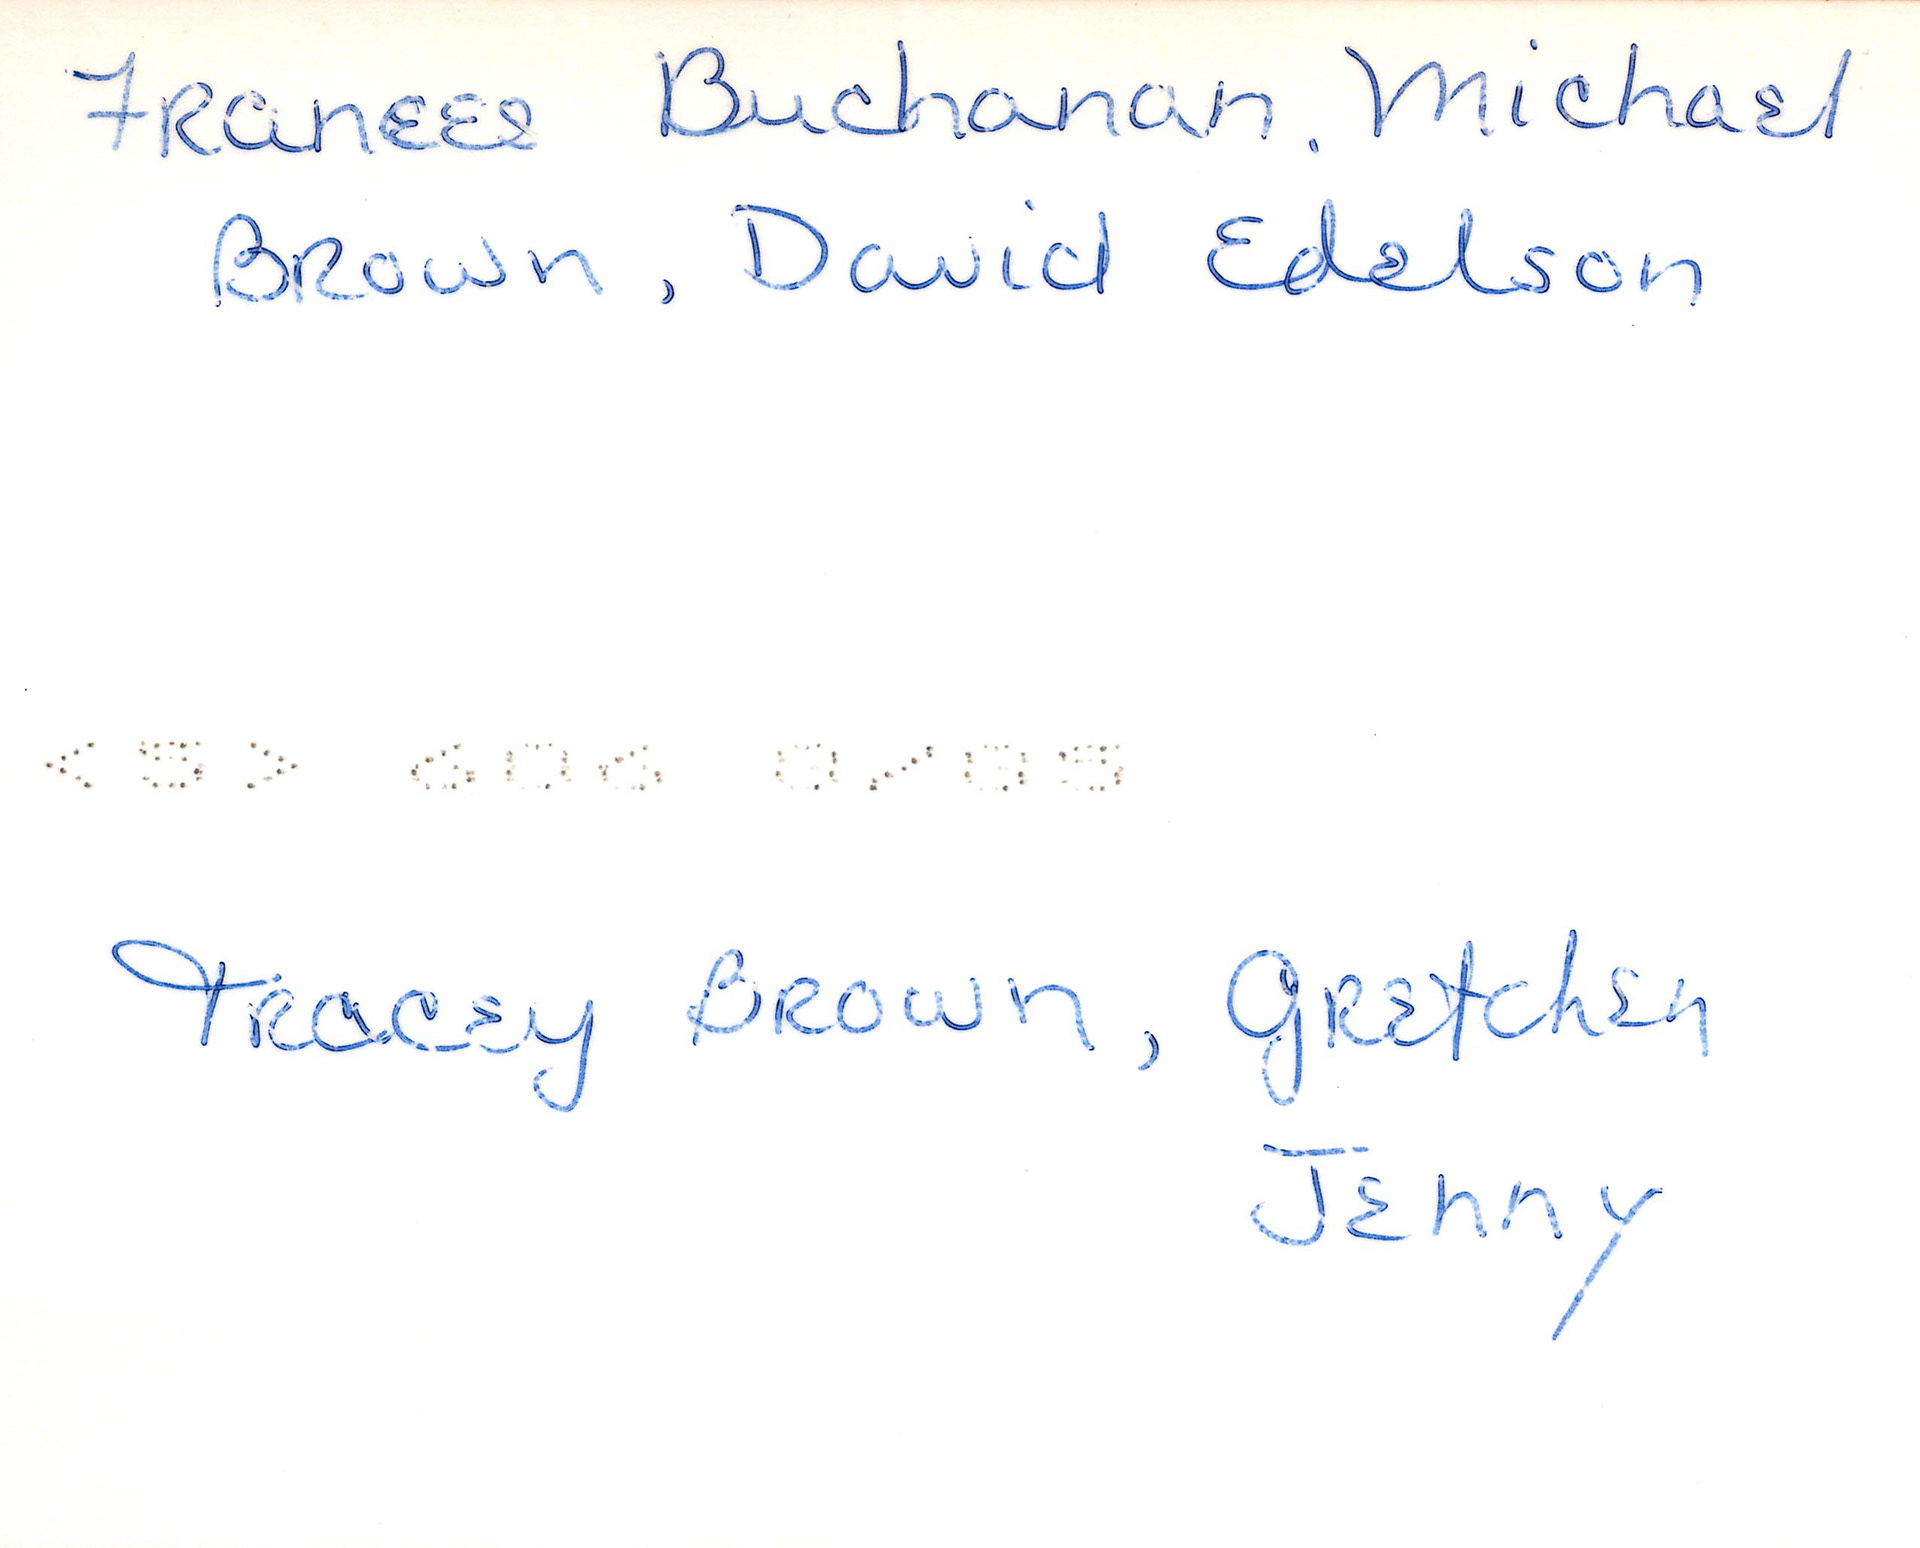 Frances Buchanan, Michael
Brown, David Edelson
Tracey Brown, Gretchen
Jenny